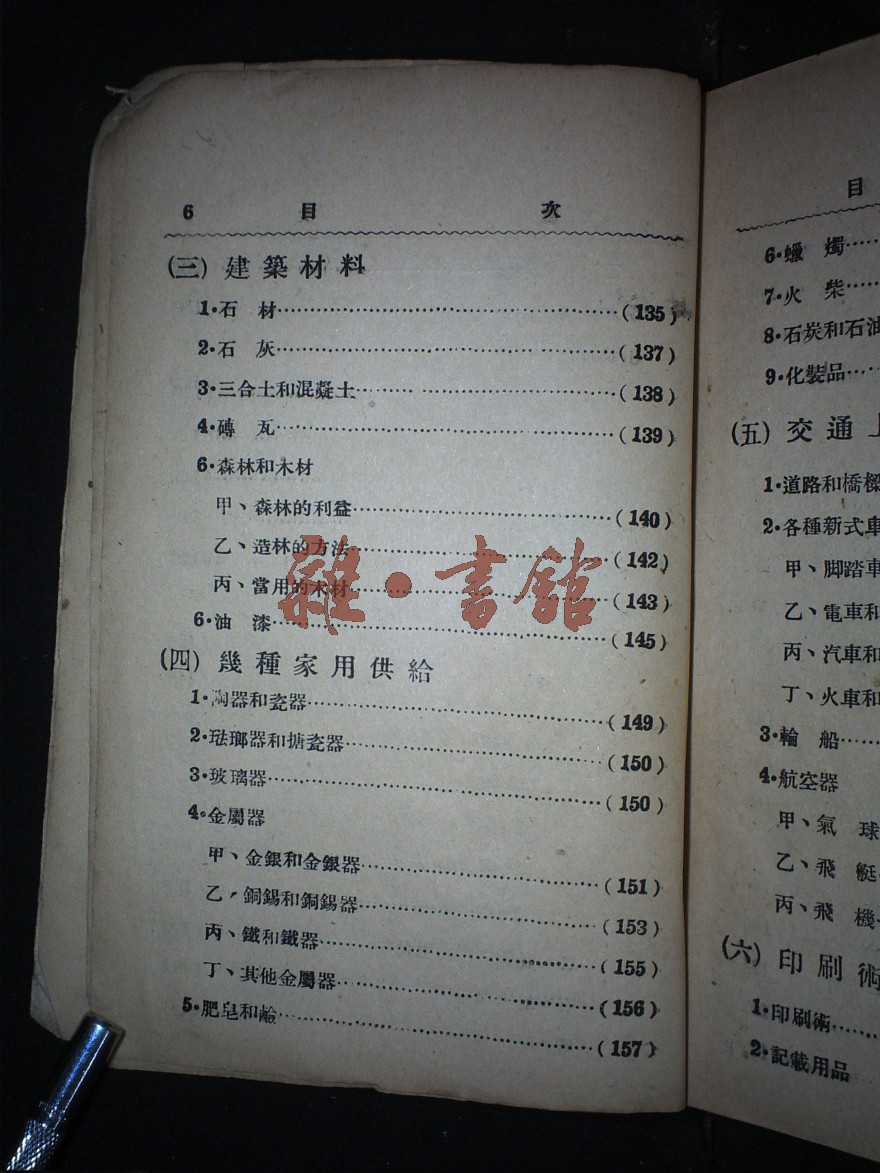 6 目 次
(三) 建築材料
1·石 材……(135)
2·石 灰……(137)
3·三合土和混凝土……(138)
4·磚 瓦……(139)
6·森林和木材
甲、森林的利益……(140)
乙、造林的方法……(142)
丙、當用的木材……(143)
6·油 漆……(145)
(四) 幾種家用供給
1·陶器和瓷器……(149)
2·琺瑯器和搪瓷器……(150)
3·玻璃器……(150)
4·金屬器
甲、金銀和金銀器……(151)
乙、銅錫和銅錫器……(153)
丙、鐵和鐵器……(155)
丁、其他金屬器……(156)
5·肥皂和鹼……(157)
雜·書館
目
6·蠟 燭……
7·火 柴……
8·石炭和石油
9·化裝品……
(五) 交通上
1·道路和橋樑
2·各種新式車
甲、脚踏車
乙、電車和
丙、汽車和
丁、火車和
3·輪 船……
4·航空器
甲、氣 球
乙、飛 艇
丙、飛 機
(六) 印刷術
1·印刷術……
2·記載用品